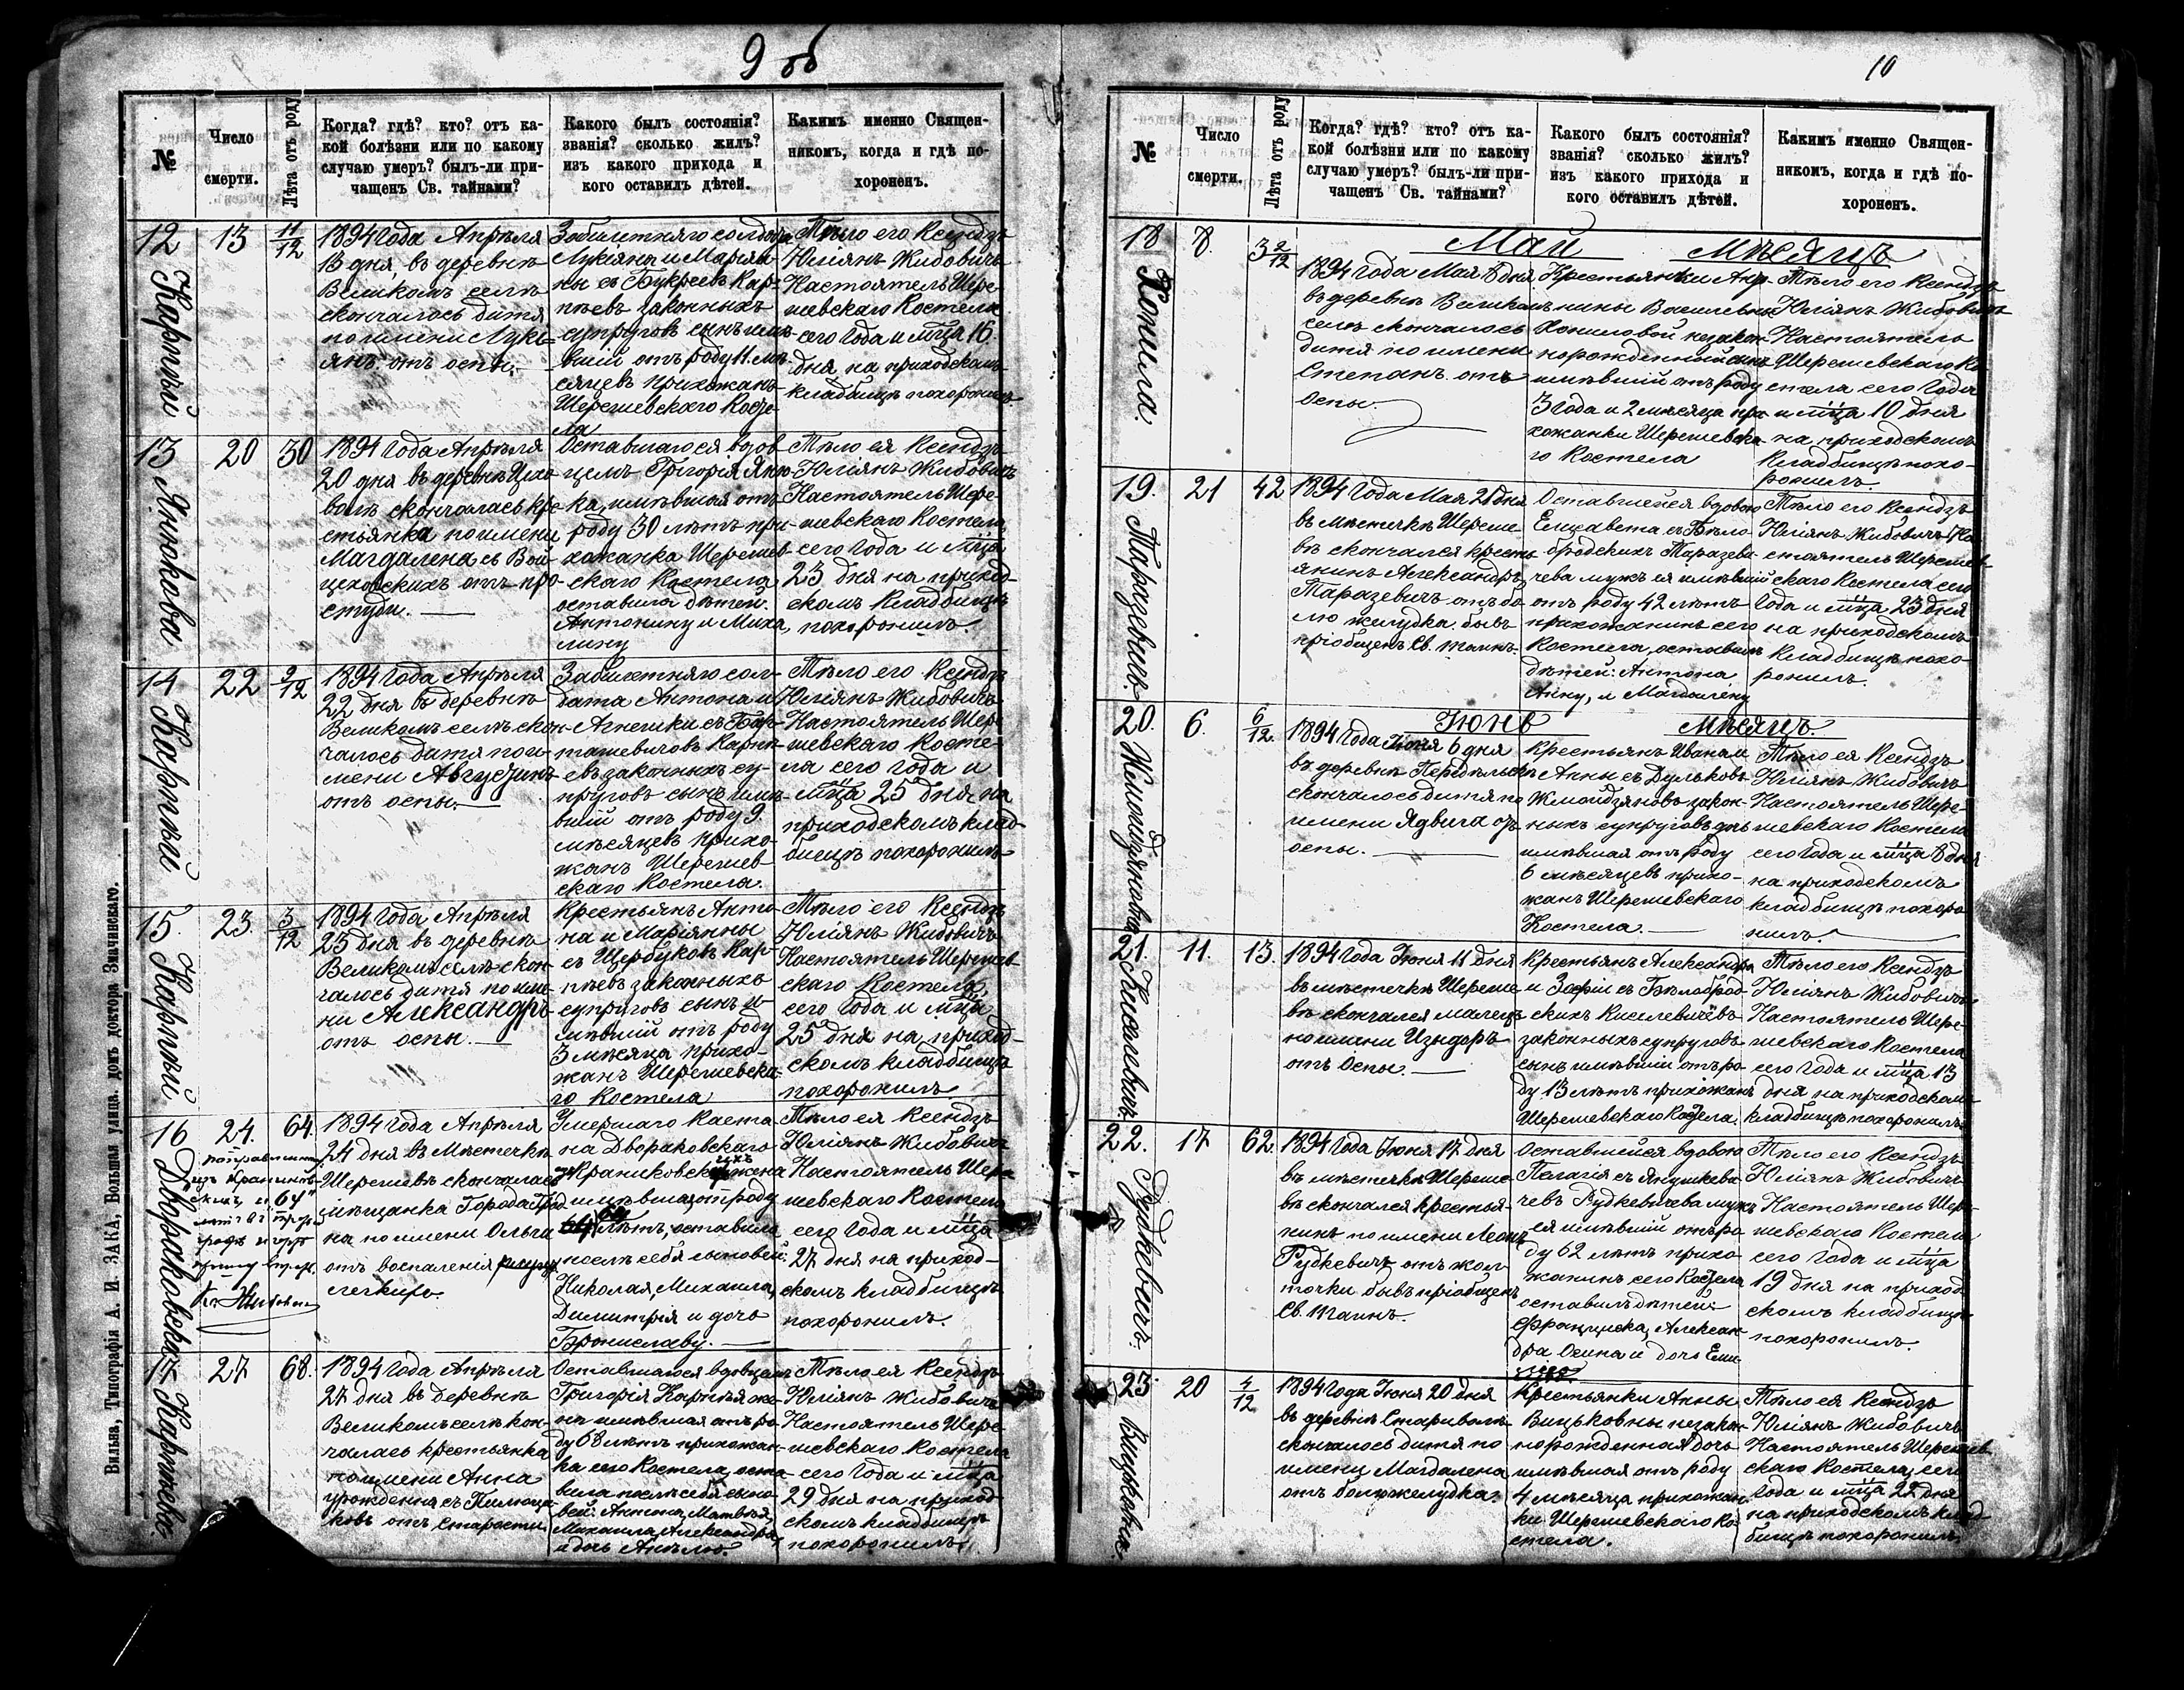 9 об
№
Число
смерти.
Лѣта отъ роду
Когда? гдѣ? кто? отъ ка-
кой болѣзни или по какому
случаю умеръ? былъ-ли при-
чащенъ Св. тайнами?
Какого былъ состоянія?
званія? сколько жилъ?
изъ какого прихода и
кого оставилъ дѣтей.
Какимъ именно Священ-
никомъ, когда и гдѣ по-
хороненъ.
12
Карпѣй
13
11/12
1894 года Апрѣля
13 дня, въ деревнѣ
Великомъ селѣ
скончалось дитя
по имени Лукі-
янъ отъ оспы.
Забилетняго солдата
Лукіяна и Марян-
ны съ Букреевъ Кар-
пѣевъ законныхъ
супруговъ сынъ имѣ-
вшій отъ роду 11 мѣ-
сяцевъ прихожанъ
Шерешевскаго Косте-
ла
Тѣло его Ксендзъ
Юліянъ Жибовичъ
Настоятель Шере-
шевскаго Костела
сего года и мѣца 15
дня на приходскомъ
кладбищѣ похоронилъ
13
Янюкова
20
30
1894 года Апрѣля
20 дня въ деревнѣ
волѣ скончалась кре-
стьянка по имени
Магдалена съ Вой-
цеховскихъ отъ про-
студы.
Оставшагося вдов-
цемъ Григорія Яню-
ка, имѣвшая отъ
роду 30 лѣтъ при-
хожанка Шерешев-
скаго Костела
оставила дѣтей:
Антонину и Миха
лину
Тѣло ея Ксендзъ
Юліянъ Жибовичъ
Настоятель Шере-
шевскаго Костела
сего года и мѣца
23 дня на приход-
скомъ кладбищѣ
похоронилъ.
14
Карпѣй
22
9/12
1894 года Апрѣля
22 дня въ деревнѣ
Великомъ селѣ скон-
чалось дитя по и-
мени Августинъ
отъ оспы.
Забилетняго сол-
дата Антона и
Агнешки съ Бар-
ташевичовъ Карпѣ-
евъ законныхъ су-
пруговъ сынъ имѣ-
вшій отъ роду 9
мѣсяцевъ прихо-
жанъ Шерешев
скаго Костела.
Тѣло его Ксендзъ
Юліянъ Жибовичъ
Настоятель Шере-
шевскаго Косте-
ла сего года и
мѣца 25 дня на
приходскомъ клад-
бищѣ похоронилъ
15.
Карпѣй
23.
3/12
1894 года Апрѣля
23 дня въ деревнѣ
Великомъ селѣ скон-
чалось дитя по име-
ни Александръ
отъ оспы.
Крестьянъ Анто-
на и Маріянны
съ Щербуковъ Кар-
пѣевъ законныхъ
супруговъ сынъ и-
мѣвшій отъ роду
3 мѣсяца прихо-
жанъ Шерешевска-
го Костела
Тѣло его Ксендзъ
Юліянъ Жибовичъ
Настоятель Шерешев-
скаго Костела
сего года и мѣца
25 дня на приход-
скомъ кладбищѣ
похоронилъ
16
Двораковская
24.
64.
1894 года Апрѣля
24 дня въ Мѣстечкѣ
Шерешевѣ скончалась
мѣщанка Города Грод
на по имени Ольга
отъ воспаленія
легкихъ.
Умершаго Каета
на Двораковскаго
жена
имѣвшая отъ роду
лѣтъ, оставила
послѣ себя сыновей:
Николая, Михаила,
Димитрія и дочь
Брониславу.
Тѣло ея Ксендзъ
Юліянъ Жибовичъ
Настоятель Шере
шевскаго Костела
сего года и мѣца
27 дня на приход-
скомъ кладбищѣ
похоронилъ.
17
Карпѣева
27
68.
1894 года Апрѣля
27 дня въ деревнѣ
Великомъ селѣ скон-
чалась крестьянка
по имени Анна
урожденна съ
ковъ отъ старости.
Оставшагося вдовцемъ
Григорія Карпѣя же-
на имѣвшая отъ ро-
ду 68 лѣтъ прихожан-
ка сего Костела, оста-
вила послѣ себя сыно-
вей: Антона, Матвѣя,
Михаила, Александра,
и дочь Анелю.
Тѣло ея Ксендзъ
Юліянъ Жибовичъ
Настоятель Шере-
шевскаго Костела
сего года и мѣца
29 дня на приход
скомъ кладбищѣ
похоронилъ.
Вильна, Типографія А. И. ЗАКА, Большая улица, домъ доктора Значковскаго.
10
№
Число
смерти.
Лѣта отъ роду
Когда? гдѣ? кто? отъ ка-
кой болѣзни или по какому
случаю умеръ? былъ-ли при-
чащенъ Св. тайнами?
Какого былъ состоянія?
званія? сколько жилъ?
изъ какого прихода и
кого оставилъ дѣтей.
Какимъ именно Священ-
никомъ, когда и гдѣ по-
хороненъ.
Май Мѣсяцъ
18
Копила.
8.
3 2/12
1894 года Мая 8 дня
въ деревнѣ Великомъ
селѣ скончалось
дитя по имени
Степанъ отъ
оспы.
Крестьянки
Копиловой незакон-
норожденный сынъ
имѣвшій отъ роду
3 года и 2 мѣсяца при
хожанки Шерешевска-
го Костела
Тѣло его Ксендзъ
Юліянъ Жибовичъ
Настоятель
Шерешевскаго Ко
стела сего года
и мѣца 10 дня
на приходскомъ
кладбищѣ похо-
ронилъ.
19.
Таразевичъ.
21
42
1894 года Мая 21 дня
въ мѣстечкѣ Шереше
вѣ скончался кресть-
янинъ Александръ
Таразевичъ отъ бо
лю желудка бывъ
пріобщенъ Св. таинъ.
Оставшейся вдовою
Елисавета съ Бѣло-
бродскихъ Таразеви-
чева мужъ ея имѣвшій
отъ роду 42 лѣтъ
прихожанинъ сего
Костела, оставивъ
дѣтей: Антона
Анну, и Магдалену
Тѣло его Ксендзъ
Юліянъ Жибовичъ На
стоятель Шерешев
скаго Костела сего
года и мѣца 23 дня
на приходскомъ
кладбищѣ похо-
ронилъ.
Іюнь Мѣсяцъ.
20.
Жмойдзянова
6.
6/12.
1894 года Іюня 6 дня
въ деревнѣ
скончалось дитя по
имени Ядвига отъ
оспы.
Крестьянъ Ивана и
Анны съ Дульковъ
Жмойдзяновъ закон-
ныхъ супруговъ дочь
имѣвшая отъ роду
6 мѣсяцевъ прихо-
жанъ Шерешевскаго
Костела.
Тѣло ея Ксендзъ
Юліянъ Жибовичъ
Настоятель Шере-
шевскаго Костела
сего года и мѣца 8 дня
на приходскомъ
кладбищѣ похоро
нилъ.
21.
Киселевичъ.
11.
13.
1894 года Іюня 11 дня
въ мѣстечкѣ Шереше
вѣ скончался малецъ
по имени Изыдоръ
отъ оспы.
Крестьянъ Александра
и Зофіи съ Бѣлоброд-
скихъ Киселевичовъ
законныхъ супруговъ
сынъ имѣвшій отъ ро-
ду 13 лѣтъ прихожанъ
Шерешевскаго Костела.
Тѣло его Ксендзъ
Юліянъ Жибовичъ
Настоятель Шере-
шевскаго Костела
сего года и мѣца 13
дня на приходскомъ
кладбищѣ похоронилъ.
22.
Рудкевичъ.
17
62.
1894 года Іюня 17 дня
въ мѣстечкѣ Шереше
вѣ скончался крестья-
нинъ по имени
Рудкевичъ отъ жол
точки бывъ пріобщенъ
Св. таинъ.
Оставшейся вдовою
Пелагія съ Янушкеви-
чевъ Рудкевичева мужъ
ея имѣвшій отъ ро-
ду 62 лѣтъ прихо-
жанинъ сего Костела
оставилъ дѣтей:
Францишка, Алексан-
дра и дочь
Тѣло его Ксендзъ
Юліянъ Жибовичъ
Настоятель Шере-
шевскаго Костела
сего года и мѣца
19 дня на приход
скомъ кладбищѣ
похоронилъ.
23.
Вицковна.
20
4/12
1894 года Іюня 20 дня
въ деревнѣ Стариволѣ
скончалось дитя по
имени Магдалена
отъ болю желудка.
Крестьянки Анны
Вицьковны незакон-
норожденная дочь
имѣвшая отъ роду
4 мѣсяца прихожан-
ки Шерешевскаго Ко-
стела.
Тѣло ея Ксендзъ
Юліянъ Жибовичъ
Настоятель Шерешев
скаго Костела, сего
года и мѣца 22 дня
на приходскомъ клад
бищѣ похоронилъ.